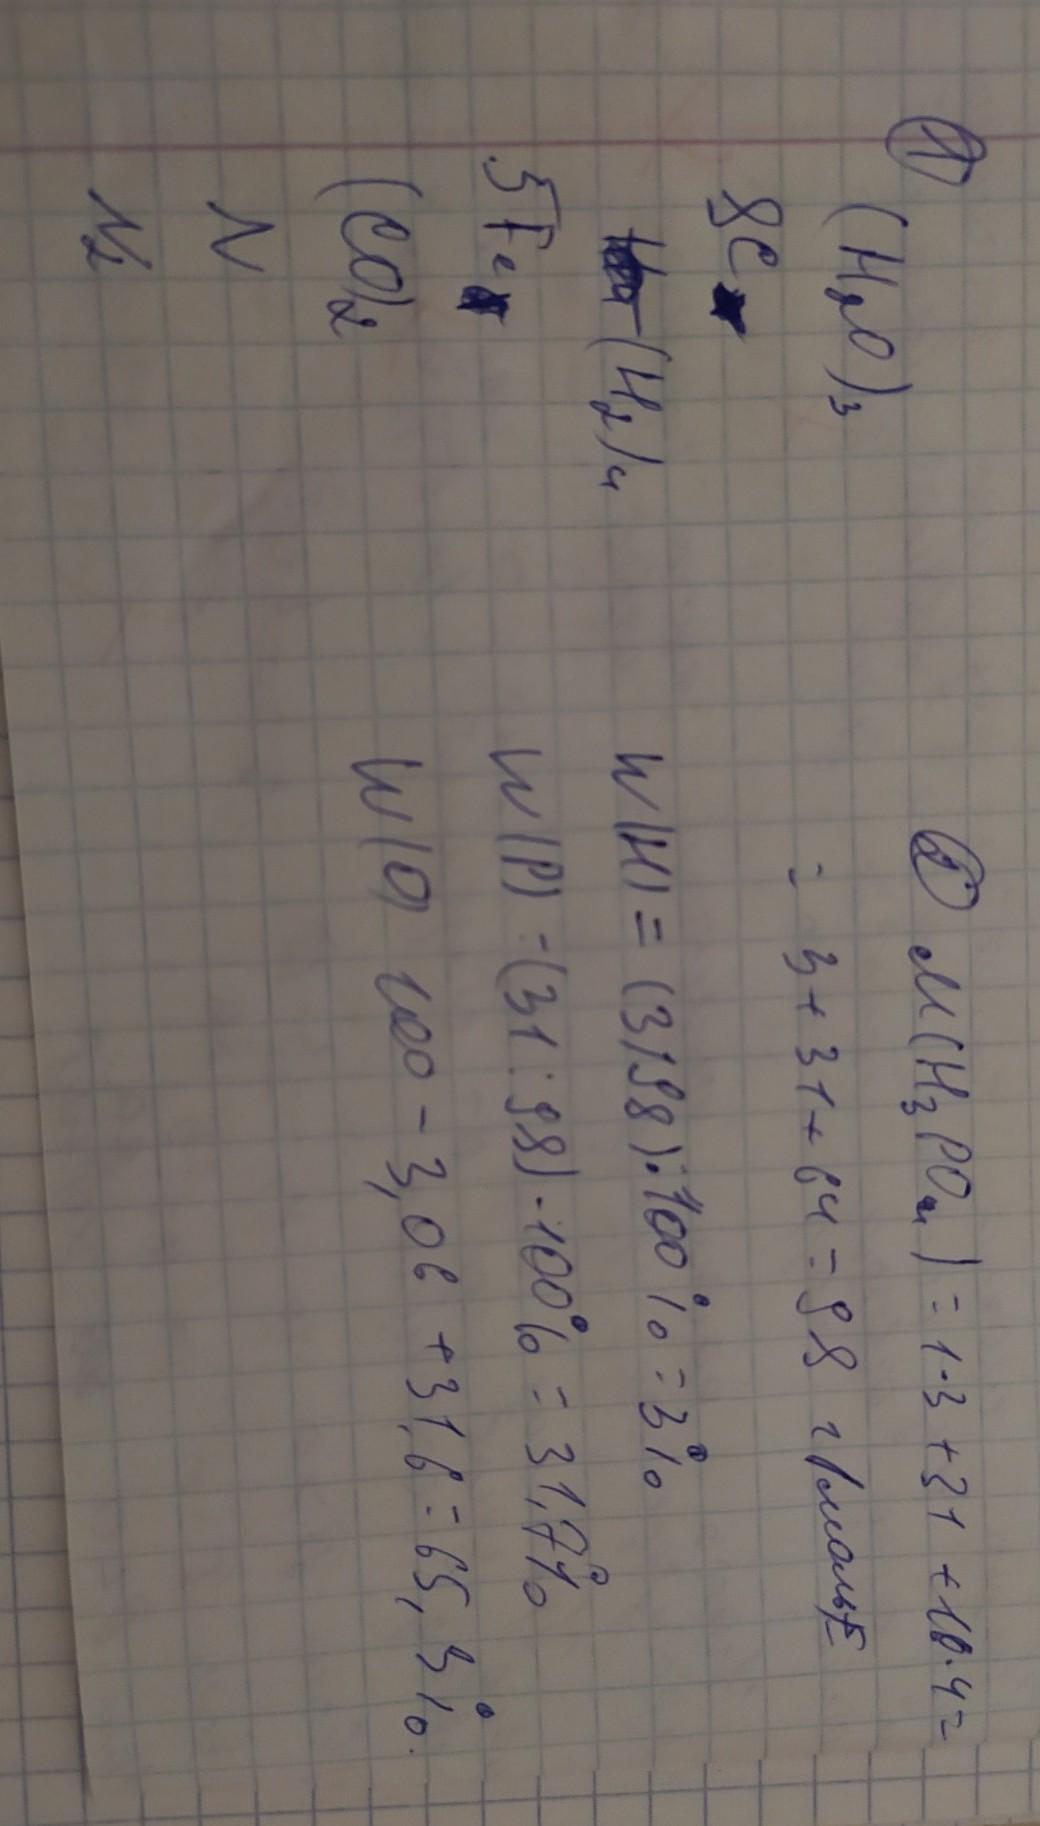 ①
(H₂O)₃
8C
(H₂)₄
5Fe
(CO)₂
N
N₂
② M(H₃PO₄) = 1·3 + 31 + 16·4 =
= 3 + 31 + 64 = 98 г/моль
W(H) = (3/98)·100% = 3%
W(P) = (31:98)·100% = 31,7%
W(O) 100 - 3,06 + 31,6 = 65,3%.